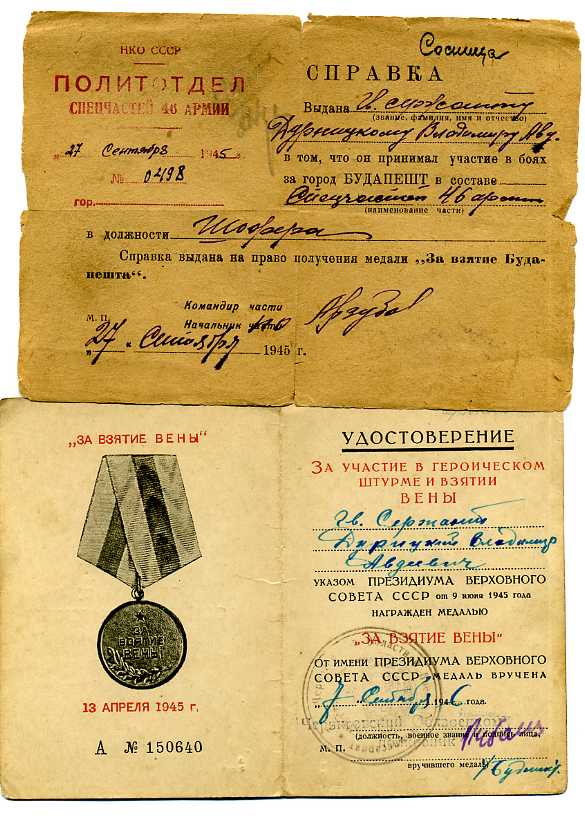 Сосница
НКО СССР
ПОЛИТОТДЕЛ
СПЕЦЧАСТЕЙ 46 АРМИИ
"27" Сентября 1945 г.
№ 0498
гор.
СПРАВКА
Выдана сержанту
(звание, фамилия, имя и отчество)
Владимиру Авд.
в том, что он принимал участие в боях
за город БУДАПЕШТ в составе
Спецчастей 46 армии
(наименование части)
в должности Шофера
Справка выдана на право получения медали „За взятие Буда-
пешта“.
М. П.
Командир части
Начальник части
„27 „ Сентября 1945 г.
„ЗА ВЗЯТИЕ ВЕНЫ“
ЗА
ВЗЯТИЕ
ВЕНЫ
13 АПРЕЛЯ 1945 г.
А № 150640
УДОСТОВЕРЕНИЕ
ЗА УЧАСТИЕ В ГЕРОИЧЕСКОМ
ШТУРМЕ И ВЗЯТИИ
ВЕНЫ
гв. Сержант
Владимир
Авдиевич
УКАЗОМ ПРЕЗИДИУМА ВЕРХОВНОГО
СОВЕТА СССР от 9 июня 1945 года
НАГРАЖДЕН МЕДАЛЬЮ
„ЗА ВЗЯТИЕ ВЕНЫ“
ОТ ИМЕНИ ПРЕЗИДИУМА ВЕРХОВНОГО
СОВЕТА СССР МЕДАЛЬ ВРУЧЕНА
7 Сентября 1946 года.
(должность, военное звание и подпись лица,
М. П.
вручившего медаль)